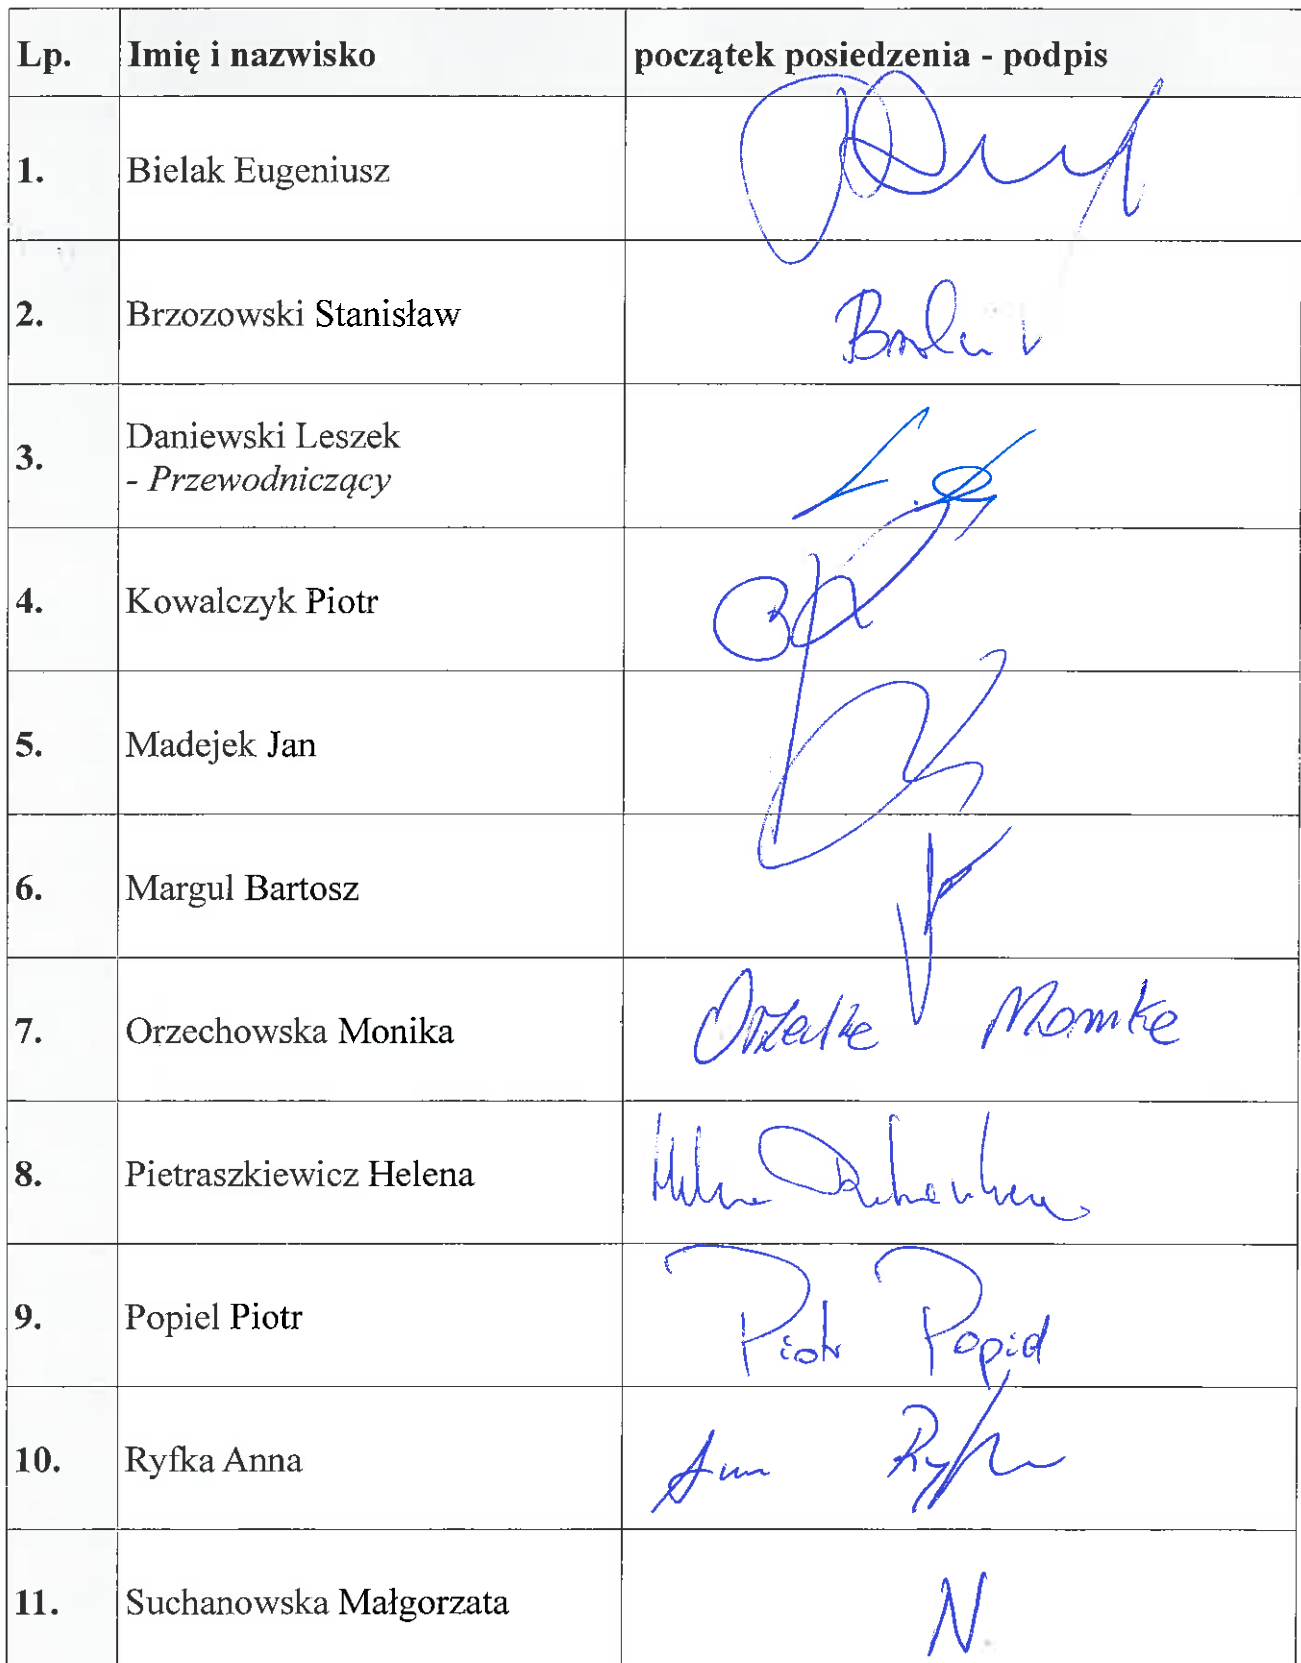 Lp. Imię i nazwisko początek posiedzenia - podpis
1. Bielak Eugeniusz
2. Brzozowski Stanisław
3. Daniewski Leszek
- Przewodniczący
4. Kowalczyk Piotr
5. Madejek Jan
6. Margul Bartosz
7. Orzechowska Monika
8. Pietraszkiewicz Helena
9. Popiel Piotr Piotr Popiel
10. Ryfka Anna
11. Suchanowska Małgorzata N